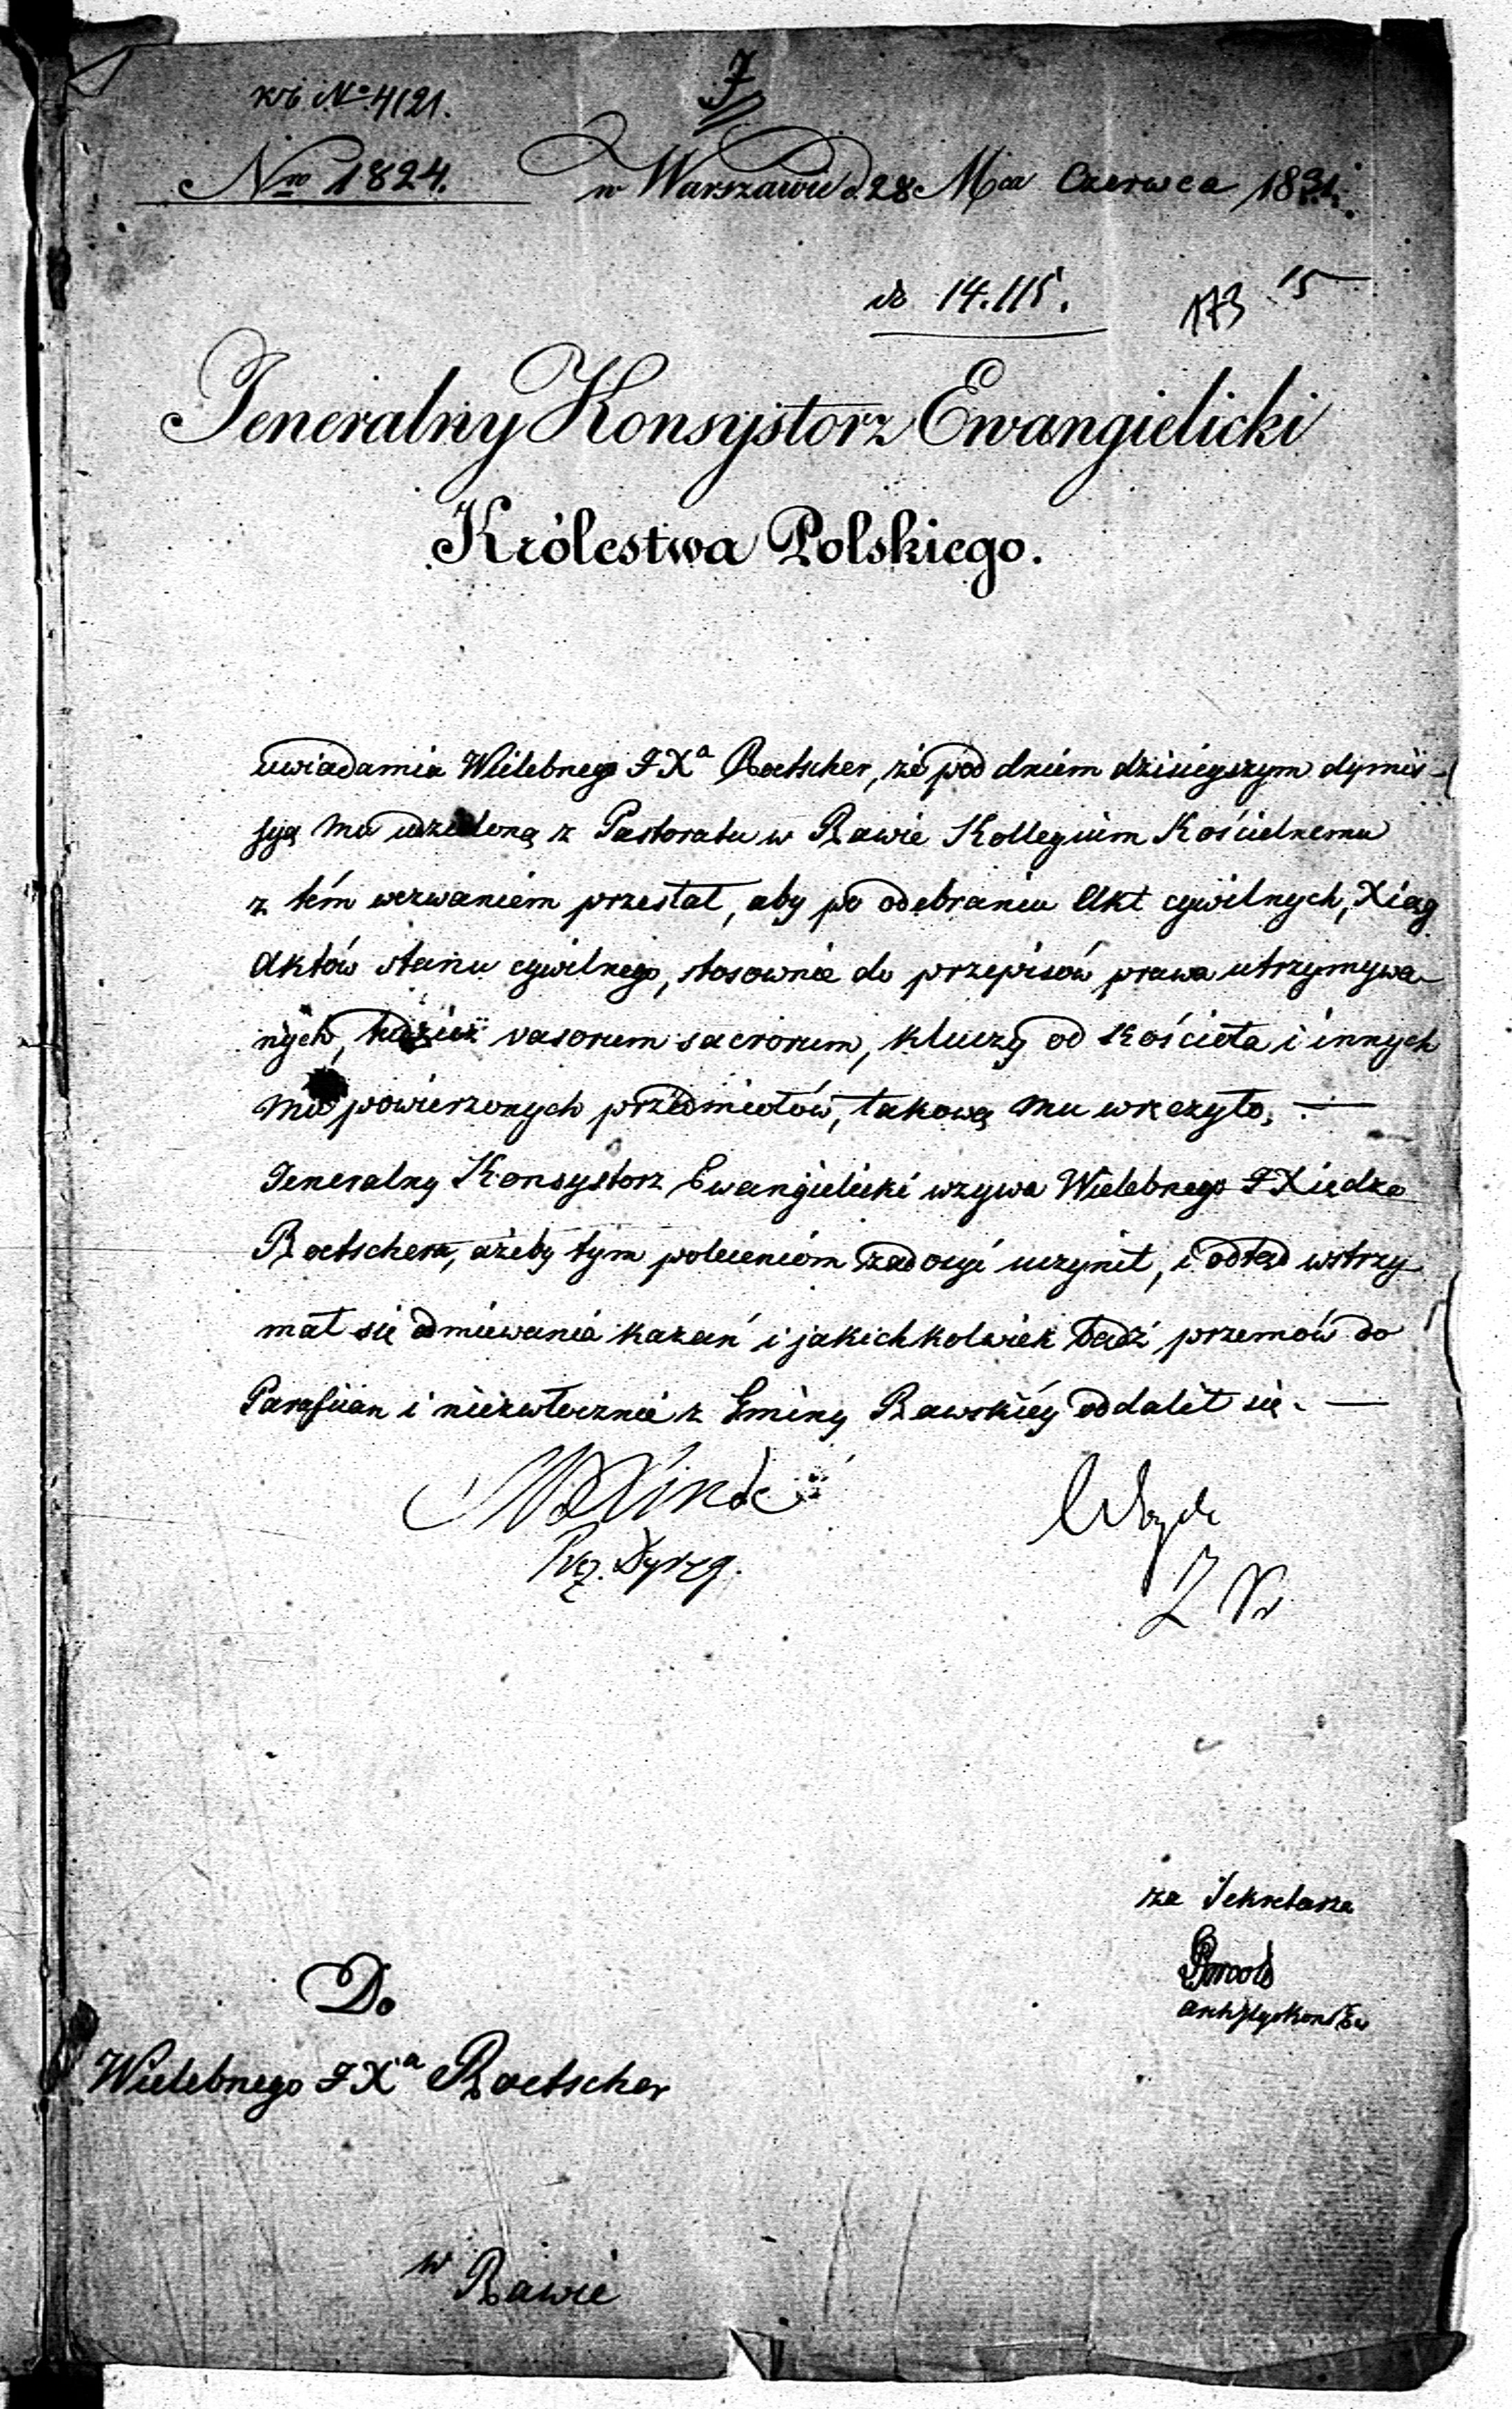 N<sup>o</sup> 4121.
7
Nro 1824. w Warszawie d. 28 Mca Czerwca 1831.
do 14.115. 173 15
Jeneralny Konsystorz Ewangielicki
Królestwa Polskiego.
uwiadamia Wielebnego JXa Roetscher, że pod dniem dzisieyszym dymis-
syą mu udzieloną z Pastoratu w Rawie Kollegium Kościelnemu
z tém wezwaniem przesłał, aby po odebraniu Akt cywilnych, Xiąg
Aktów stanu cywilnego, stosownie do przepisów prawa utrzymywa-
nych, tudzież vasorum sacrorum, kluczy od Kościoła i innych
mu powierzonych przedmiotów, takową mu wręczyło. —
Jeneralny Konsystorz Ewangielicki wzywa Wielebnego JXiędza
Roetschera, ażeby tym poleceniom zadosyć uczynił, i odtąd wstrzy
mał się odmiewania kazań i jakichkolwiek bądź przemów do
Parafiian i niezwłocznie z Gminy Rawskiéy oddalił się. —
Linde
Prez. Dyreg.
za Sekretarza
Do
Wielebnego JXa Roetscher
w Rawie